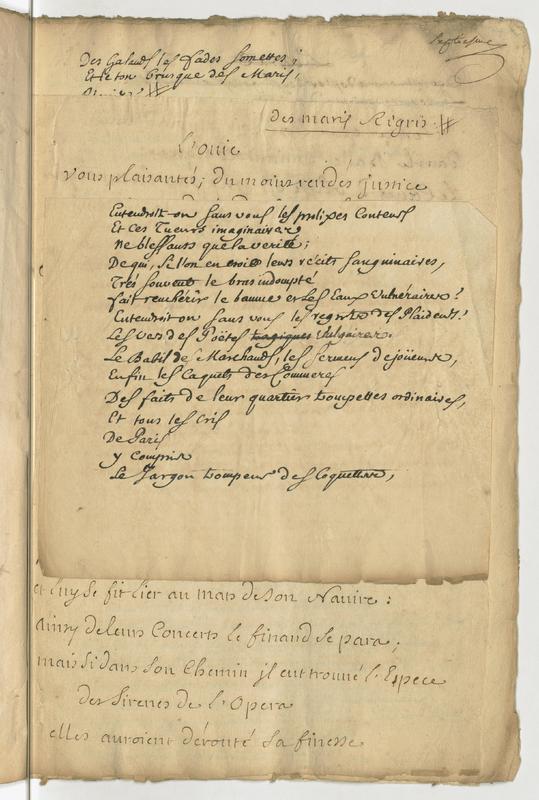 Des Galands les fades sornettes;
Et le ton brusque des Maris,
des maris Regris #
L'ouie
Vous plaisantés; du moins rendes justice
Entendroit-on sans vous les prolixes Conteurs
Et ces Tueurs imaginaires
Ne blessants que la verité;
De qui, si l'on en croit leurs récits sanguinaires,
Très souvent le bras indompté
fait renchérir le baume et les Eaux Vulnéraires?
Entendroit-on sans vous les regrets des Plaideurs?
Les Vers des Poëtes tragiques Vulgaires.
Le Babil de Marchands, les sermens de joüeurs,
Enfin les Caquets des Commeres
Des faits de leur quartier trompettes ordinaires,
Et tous les Cris
De Paris
y compris
Le Jargon trompeur des Coquettes,
et luy se fit lier au mats de son Navire:
Ainsy de leurs Concerts le finaud se para;
mais si dans son Chemin jl eut trouvé l'Espece
des Sirenes de l'Opera
elles auroient dérouté sa finesse